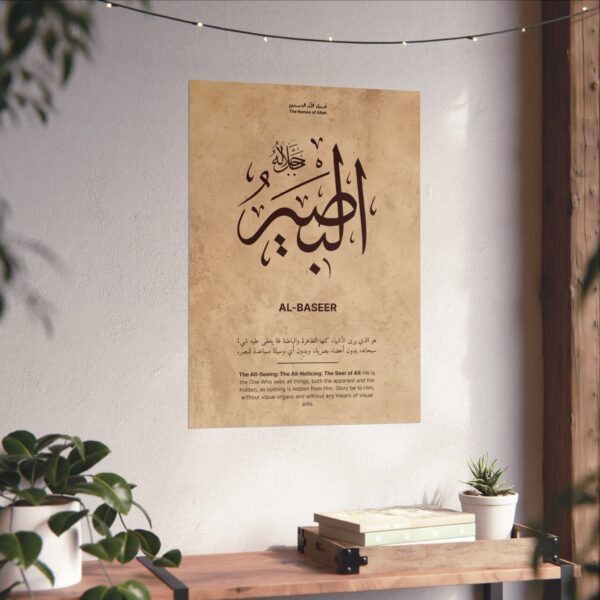 أسماء الله الحسنى
The Names of Allah
جل جلاله
البصير
AL-BASEER
هو الذي يرى الأشياء كلها الظاهرة والباطنة فلا يخفى عليه شيء
سبحانه، بدون أعضاء بصرية، وبدون أي وسيلة مساعدة للبصر.
The All-Seeing: The All-Noticing: The Seer of All: He is
the One Who sees all things, both the apparent and the
hidden, as nothing is hidden from Him, Glory be to Him,
without visual organs and without any means of visual
aids.
HOME